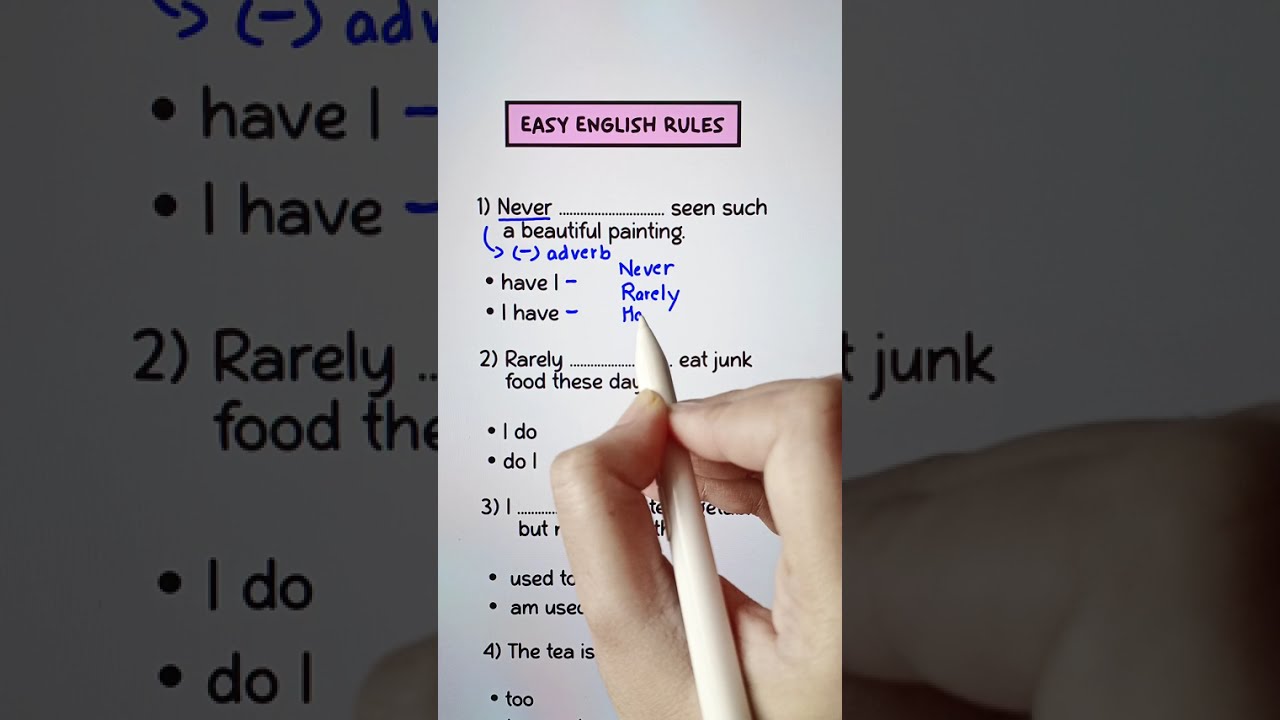 EASY ENGLISH RULES
1) Never .............................. seen such
a beautiful painting.
(-) adverb
• have I -
• I have -
Never
Rarely
2) Rarely ..................... eat junk
food these
• I do
• do I
3) I ...........
but
• used
• am
4) The tea is
• too